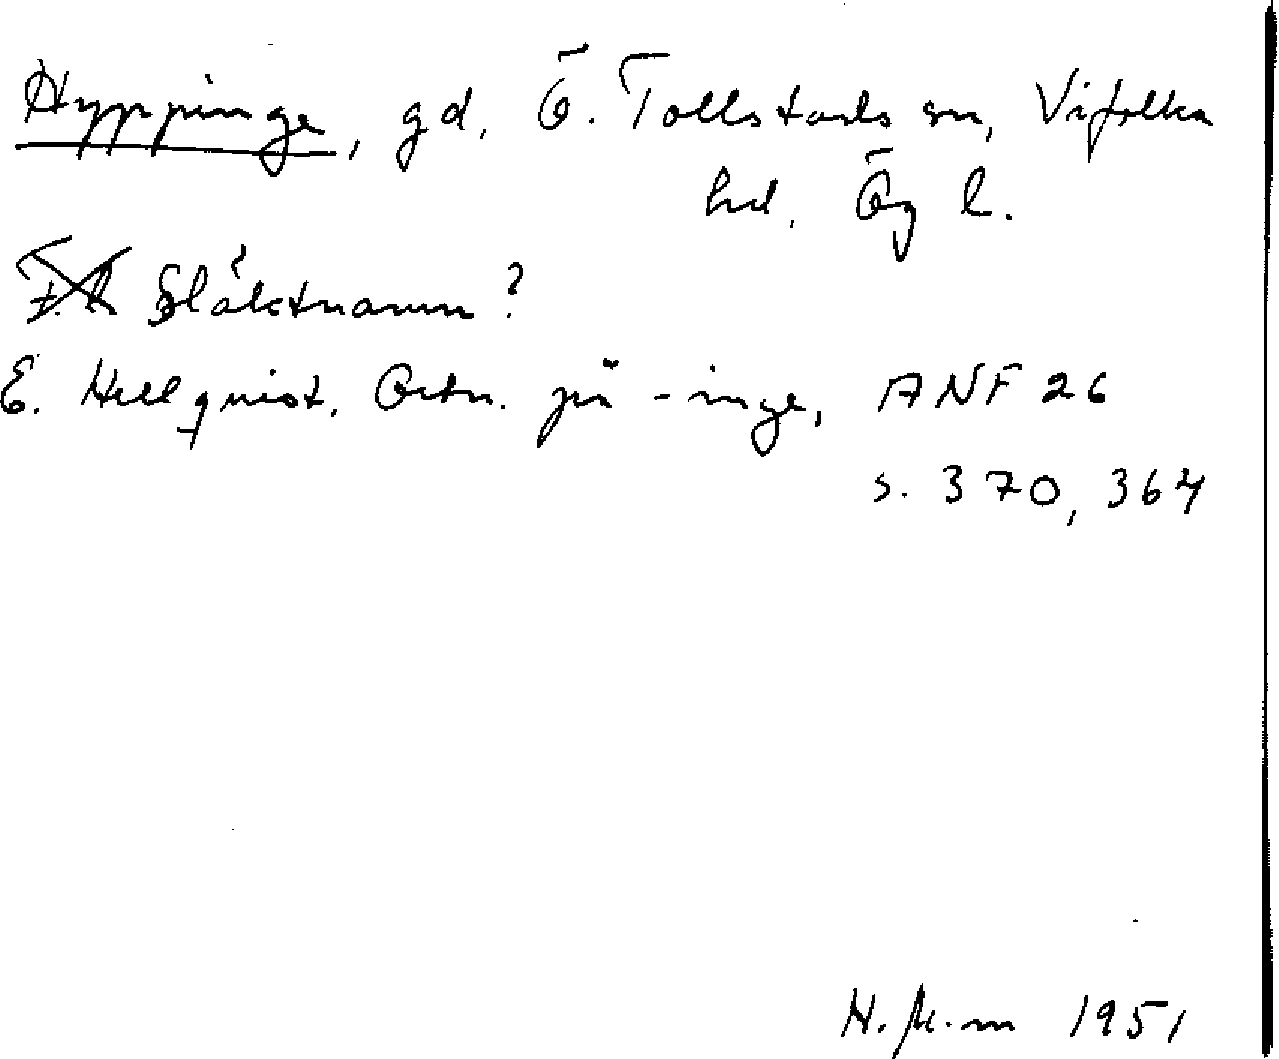 Hyppinge, gd, Ö. Tollstads sn, Vifolka
hd. Ög l.
Släktnamn?
E. Hellquist, Ortn. på -inge, ANF 26
s. 370, 364
1951